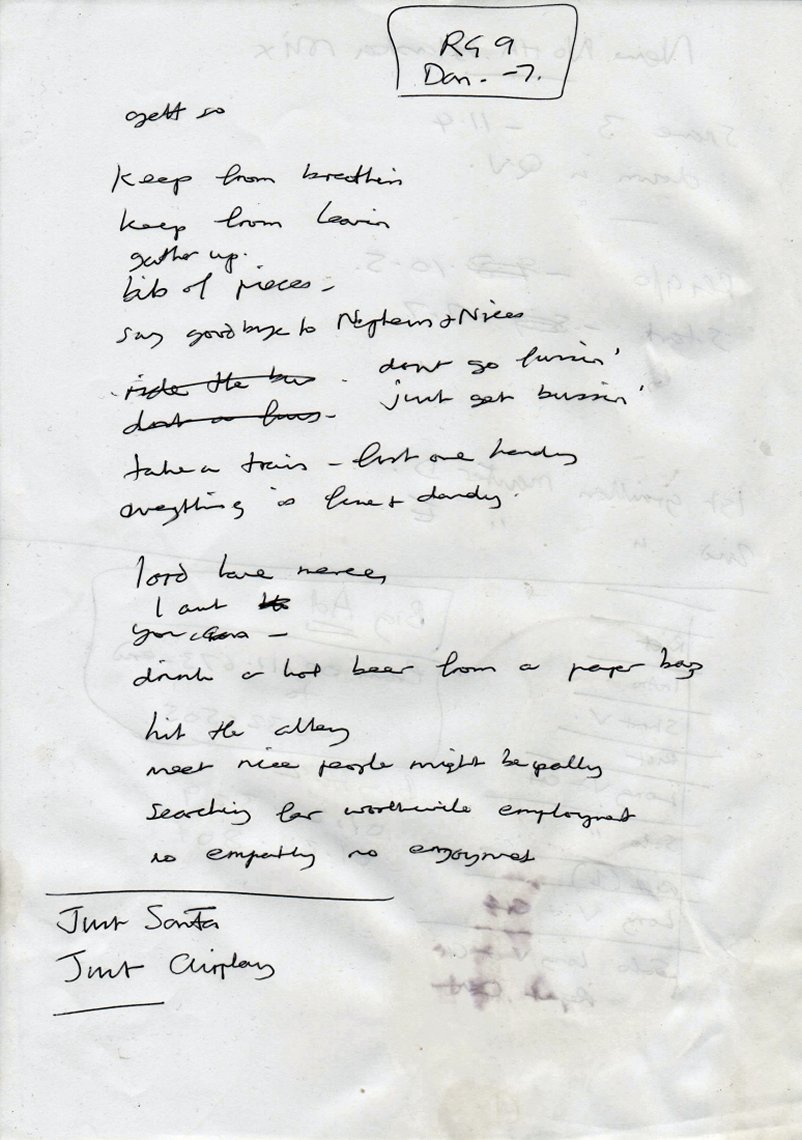 RG 9
Dan. -7.
gett so
keep from breathin
keep from leavin
gather up.
bits of pieces -
say goodbye to Nephews & Nices
ride the bus . dont go fussin'
just get bussin'
take a train - last one handy
everything is fine & dandy.
lord have mercey
I aut
you -
drink a hot beer from a paper bag
hit the alley
meet nice people might be pally
searching for worthwile employmet
no empathy no enjoymet
Just Santa
Just Airplay